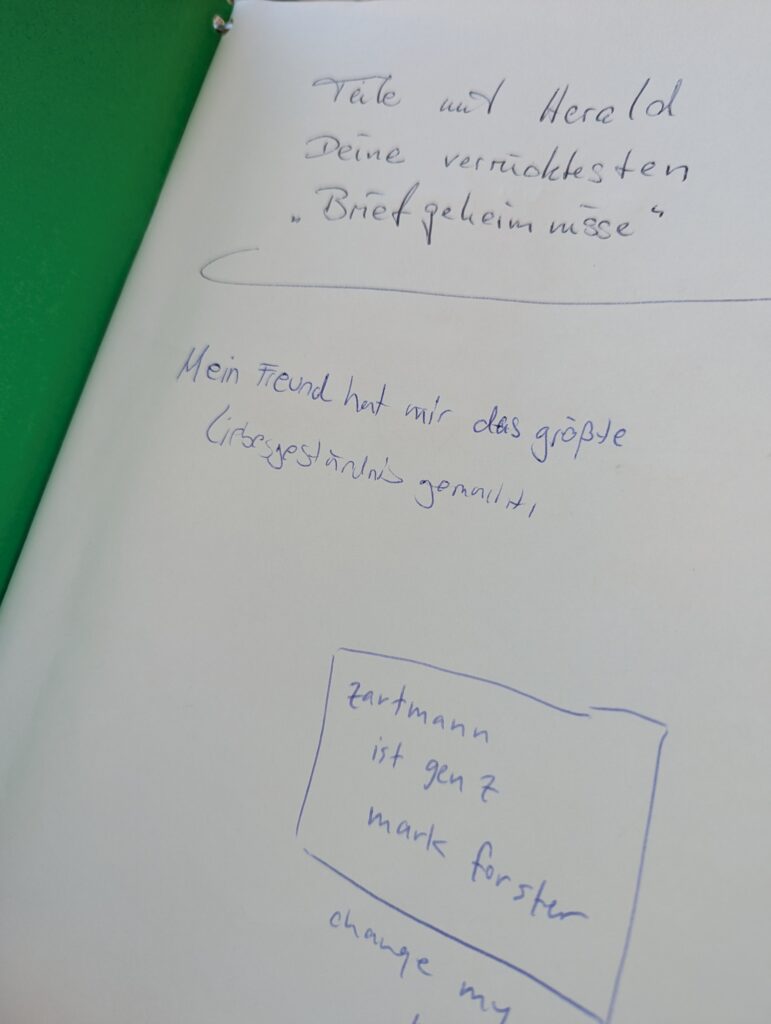 Teile mit Herald
Deine verrücktesten
„Briefgeheimnisse“
Mein Freund hat mir das größte
Liebesgeständnis gemacht,
zartmann
ist gen z
mark forster
change my